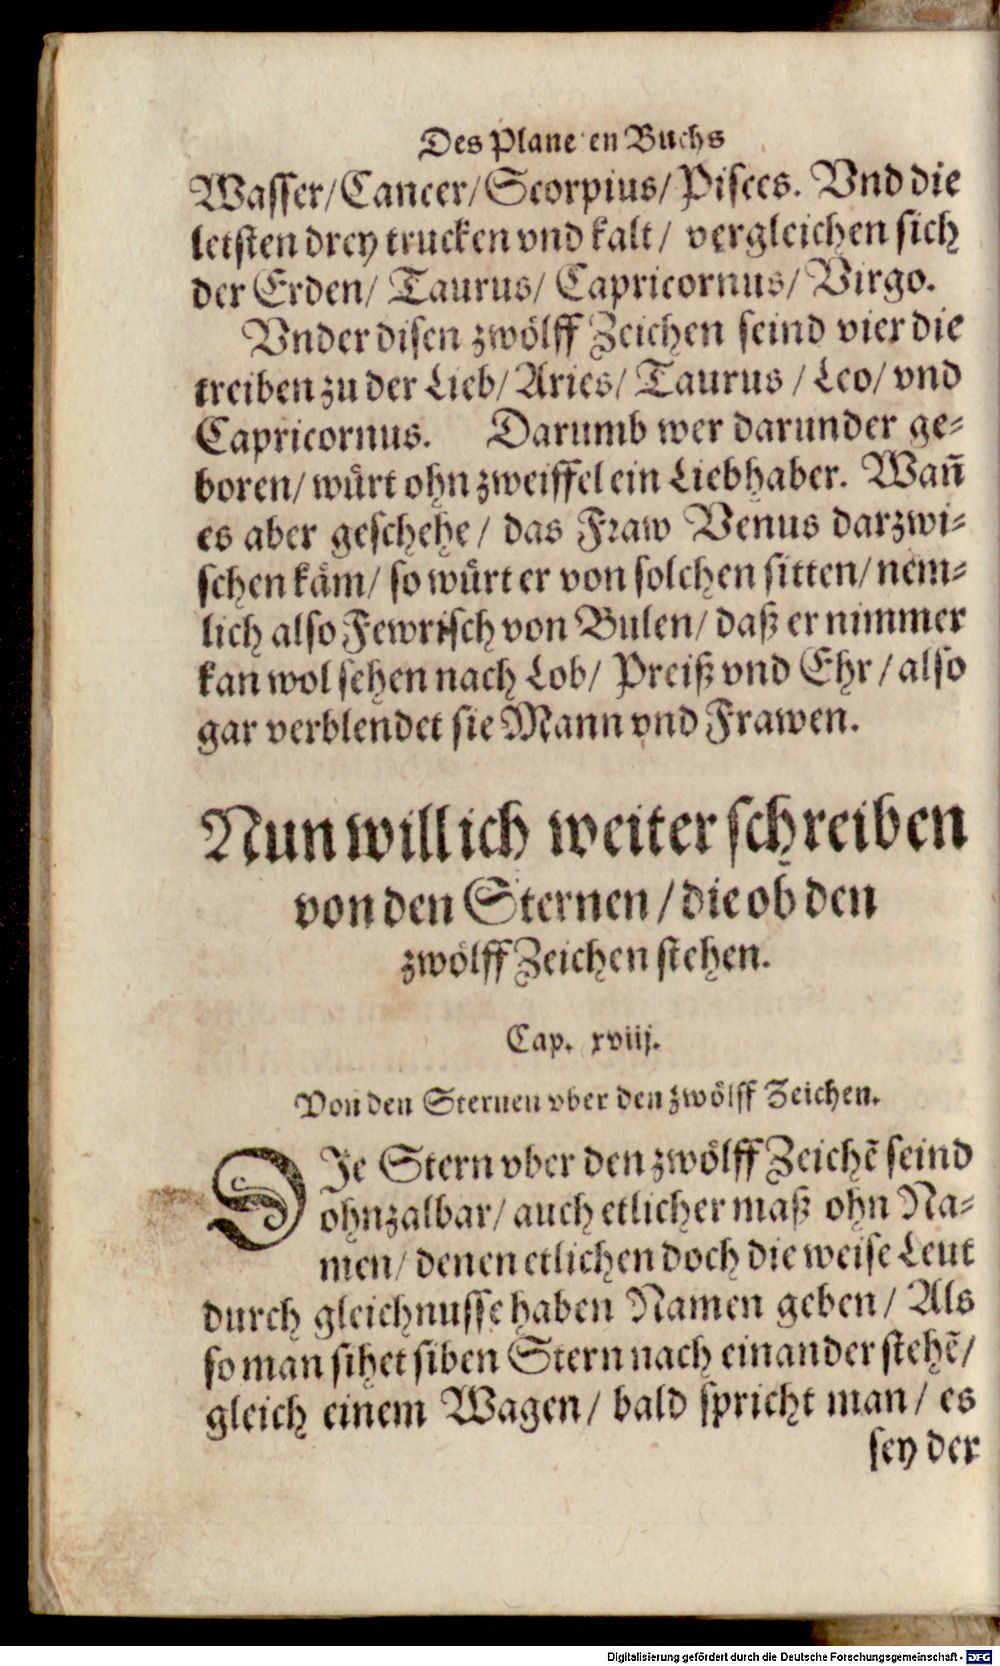 Des Plane en Buchs
Wasser/Cancer/Scorpius/Pisces. Vnd die
letsten drey trucken vnd kalt/ vergleichen sich
der Erden/ Taurus/ Capricornus/ Virgo.
Vnder disen zwoͤlff Zeichen seind vier die
treiben zu der Lieb/ Aries/ Taurus / Leo/ vnd
Capricornus. Darumb wer darunder ge-
boren/ wuͤrt ohn zweiffel ein Liebhaber. Wañ
es aber geschehe/ das Fraw Venus darzwi-
schen kaͤm/ so wuͤrt er von solchen sitten/ nem-
lich also Fewrisch von Bulen/ daß er nimmer
kan wol sehen nach Lob/ Preiß vnd Ehr / also
gar verblendet sie Mann vnd Frawen.
Nun will ich weiter schreiben
von den Sternen / die ob den
zwoͤlff Zeichen stehen.
Cap. xviij.
Von den Sternen vber den zwoͤlff Zeichen.
DJe Stern vber den zwoͤlff Zeichẽ seind
ohnzalbar/ auch etlicher maß ohn Na-
men/ denen etlichen doch die weise Leut
durch gleichnusse haben Namen geben / Als
so man sihet siben Stern nach einander stehẽ/
gleich einem Wagen/ bald spricht man / es
sey der
Digitalisierung gefördert durch die Deutsche Forschungsgemeinschaft - DFG